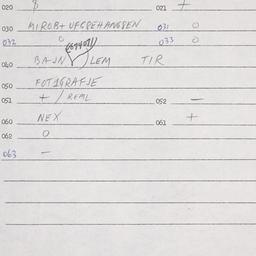 020 8 021 +
030 MIROB+ UFCBEHANGSEN 031 0
032 0 033 0
040 BAJN LEM TIR
050 FOTOGRAFJE
051 + / REAL 052 -
060 NEX 061 +
062 0
063 -